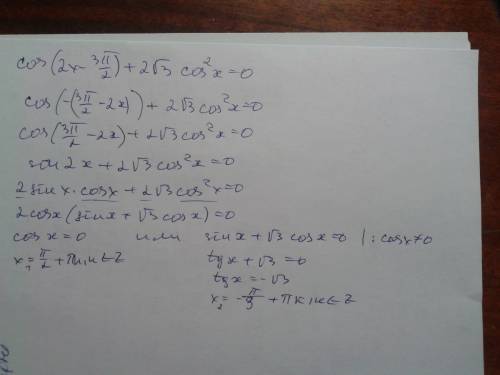 cos(2x-3π/2)+2√3 cos²x=0
cos(-(3π/2-2x))+2√3cos²x=0
cos(3π/2-2x)+2√3cos²x=0
sin2x+2√3cos²x=0
2sinx·cosx+2√3cos²x=0
2cosx(sinx+√3cosx)=0
cosx=0 или sinx+√3cosx=0 |:cosx≠0
x₁=π/2+πk,k∈Z tgx+√3=0
tgx=-√3
x₂=-π/3+πk,k∈Z